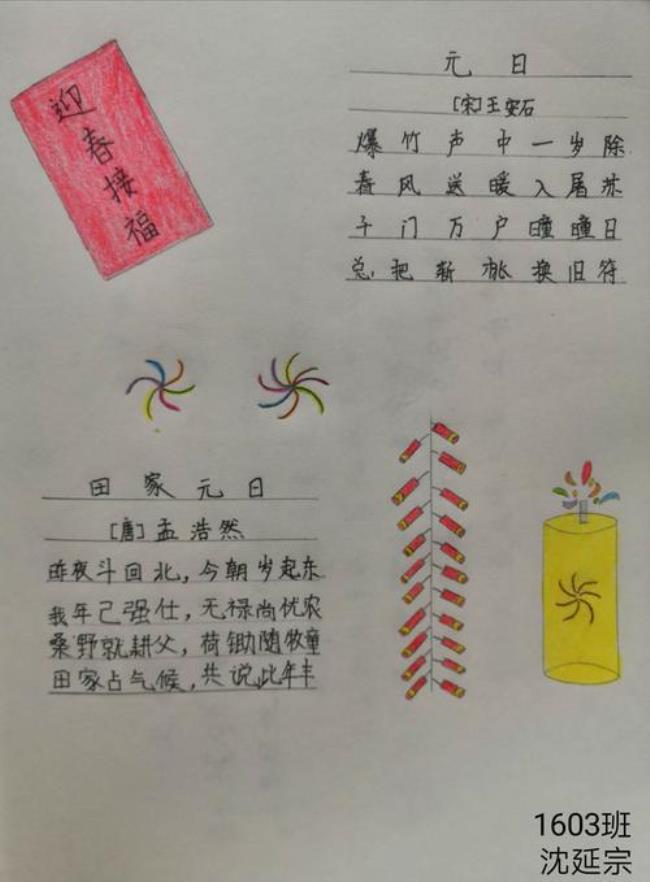 迎春接福
元日
[宋]王安石
爆竹声中一岁除
春风送暖入屠苏
千门万户曈曈日
总把新桃换旧符
田家元日
[唐]孟浩然
昨夜斗回北,今朝岁起东
我年已强仕,无禄尚忧农
桑野就耕父,荷锄随牧童
田家占气候,共说此年丰
1603班
沈延宗